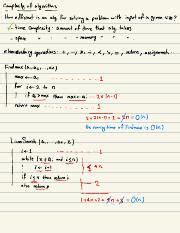 Complexity of algorithms
How efficient is an alg for solving a problem with input of a given size?
time complexity: amount of time that alg takes
space " : " " memory " "
elementary operations: +, -, *, ÷, <, =, return, assignment...
Findmax (a₁, a₂, ..., aₙ)
max ← a₁ 1
for i ← 2 to n
if aᵢ > max then max ← aᵢ 2×(n-1)
return max 1
1 + 2(n-1) + 1 = 2n = O(n)
So running time of Findmax is O(n)
i ← 1 1
while (x ≠ aᵢ and i ≤ n)
i ← i+1
if i ≤ n then return i
else return 0
1+4n+2 = 4n+3 = O(n)